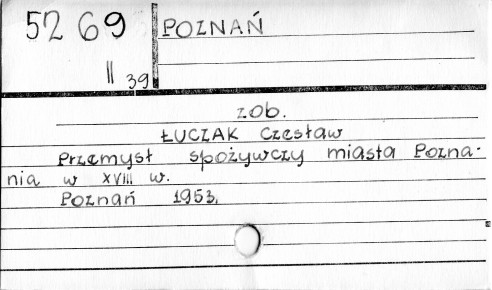 5269
II 39
POZNAŃ
zob.
ŁUCZAK Czesław
Przemysł spożywczy miasta Pozna-
nia w XVIII w.
Poznań 1953.